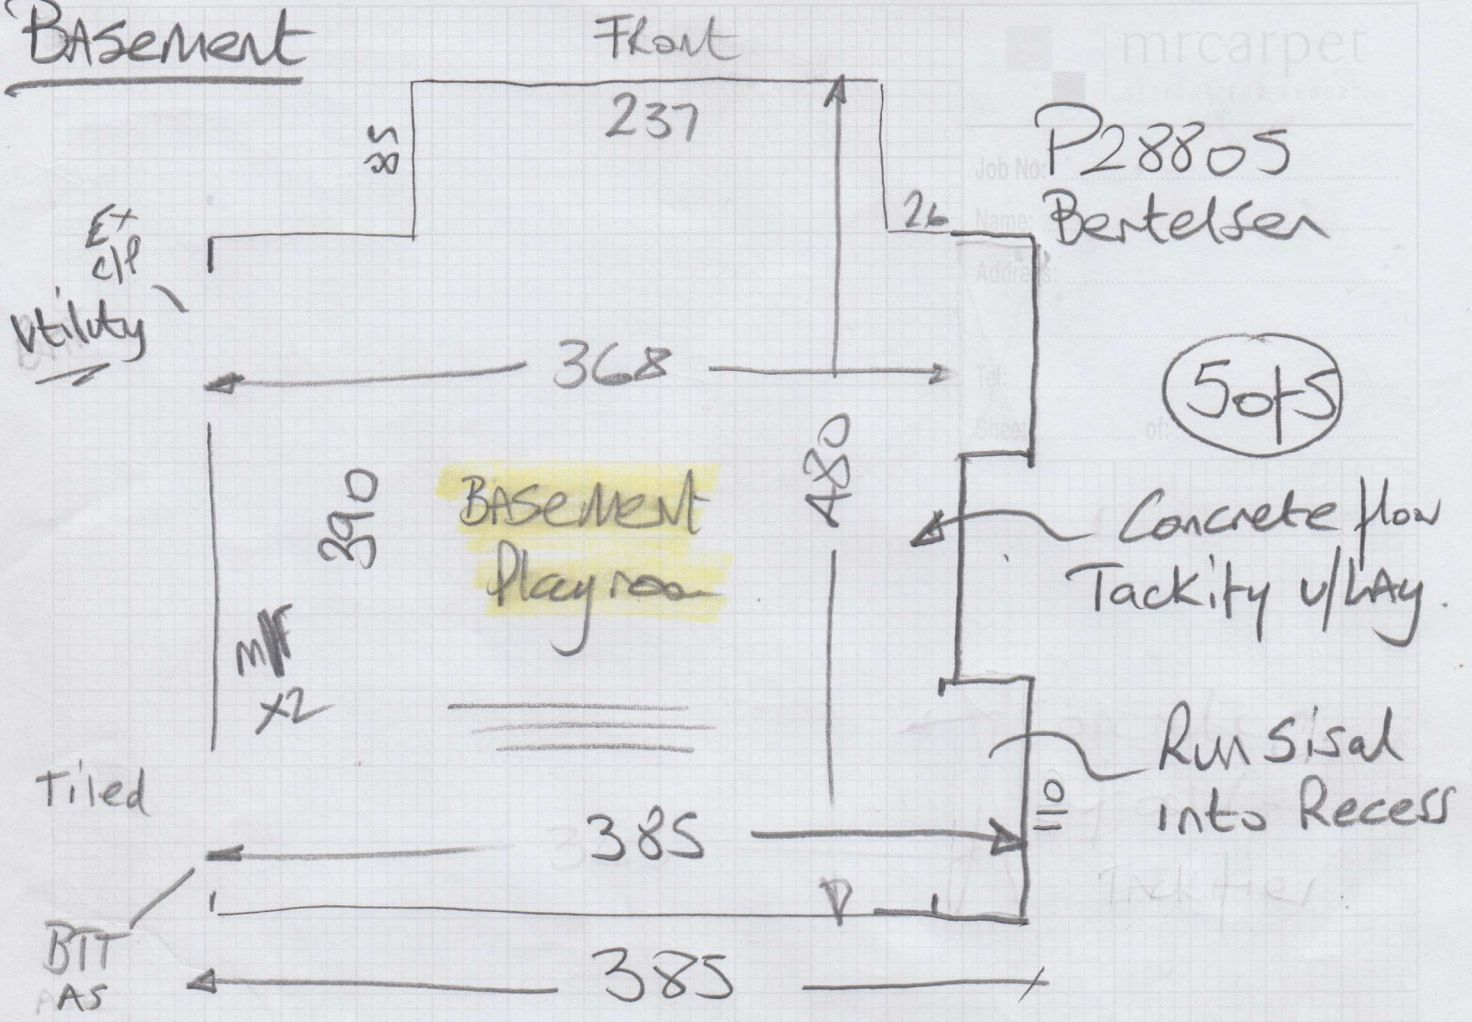 BASement
Front
mrcarpet
DESIGNS FOR FLOORS
237
85
Job No:
P28805
26
Name:
Bertelsen
Ex
c/p
Address:
Utility
368
Tel:
5 of 5
Sheet
of:
480
390
BASement
Playroom
Concrete floor
Tackity u/LAy.
M/F
x2
Run Sisal
into Recess
110
Tiled
385
BTT
AS
385